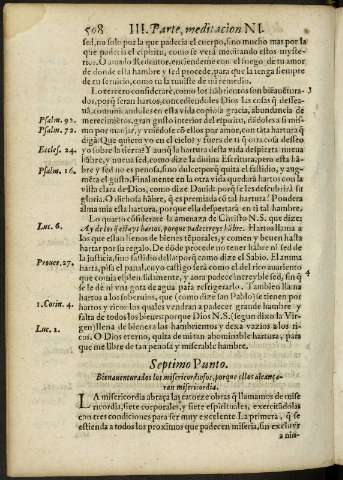 508 III. Parte, meditacion XI.
sed, no solo por la que padecia el cuerpo, sino mucho mas por la
que padecia el espiritu, como se verá meditando estos myste-
rios. O amado Redentor, enciendeme con el fuego de tu amor
de donde esta hambre y sed procede, para que la tenga siempre
de tu servicio, como tu la tuviste de mi remedio.
Lo tercero considerarè, como los hãbrientos son bienavẽtura-
dos, porq̃ seran hartos, concediendoles Dios las cosas q̃ dessea-
nã, comunicandoles en esta vida copiosa gracia, abundancia de
merecimiẽtos, gran gusto interior del espiritu, dãdose a si mis-
mo por manjar, y viniedose cõ ellos por amor, con tãta hartura q̃
digã: Que quiero yo en el cielo, y fuera de ti q̃ otra cosa desseo
yo sobre la tierra? Y aunq̃ la hartura desta vida despierta nueua
hãbre, y nueua sed, como dize la diuina Escritura, pero esta hã-
bre y sed no es penosa, sino dulce: porq̃ quita el fastidio, y aug-
mẽta el gusto. Finalmente en la otra vida quedarà hartos con la
vista clara de Dios, como dize Dauid: porq̃ se les descubrirà su
gloria. O dichosa hãbre, q̃ es premiada cõ tal hartura! Pondera
alma mia esta hartura, porque ella despertarà en ti tal hambre.
Lo quarto cõsiderarè la amenaza de Christo N. S. que dize:
Ay de los q̃ estays hartos, porque padecereys hãbre. Hartos llama a
los que estan llenos de bienes tẽporales, y comen y beuen hasta
hartar por su regalo. De dõde procede no tener hãbre ni sed de
la justicia, sino fastidio della: porq̃ como dize el Sabio, El anima
harta, pisa el panal, cuyo castigo serà como el del rico auariento
que comia esplendidamente, y aora padece increyble sed, sin q̃
se le de ni vna gota de agua para refrigerarlo. Tambien llama
hartos a los soberuios, que (como dize san Pablo) se tienen por
hartos y ricos: los quales vendran a padecer grande hambre y
falta de todos los bienes: porque Dios N. S. (segun dixo la Vir-
gen) llena de bienes a los hambrientos y dexa vazios a los ri-
cos. O Dios eterno, quita de mi tan abominable hartura, para
que me libre de tan penosa y miserable hambre.
Psalm. 92.
Psalm. 72.
Eccles. 24.
Psalm. 16.
Luc. 6.
Prouer. 27.
1. Corin. 4.
Luc. 1.
3
4
Septimo Punto.
Bienauenturados los misericordiosos, porque ellos alcança-
ran misericordia.
LA misericordia abraça las catorze obras q̃ llamamos de mise
ricordia, siete corporales, y siete espirituales, exercitãdolas
con tres condiciones para ser muy excelente. La primera, q̃ se
estienda a todos los proximos que padecen miseria, sin excluyr
a nin-